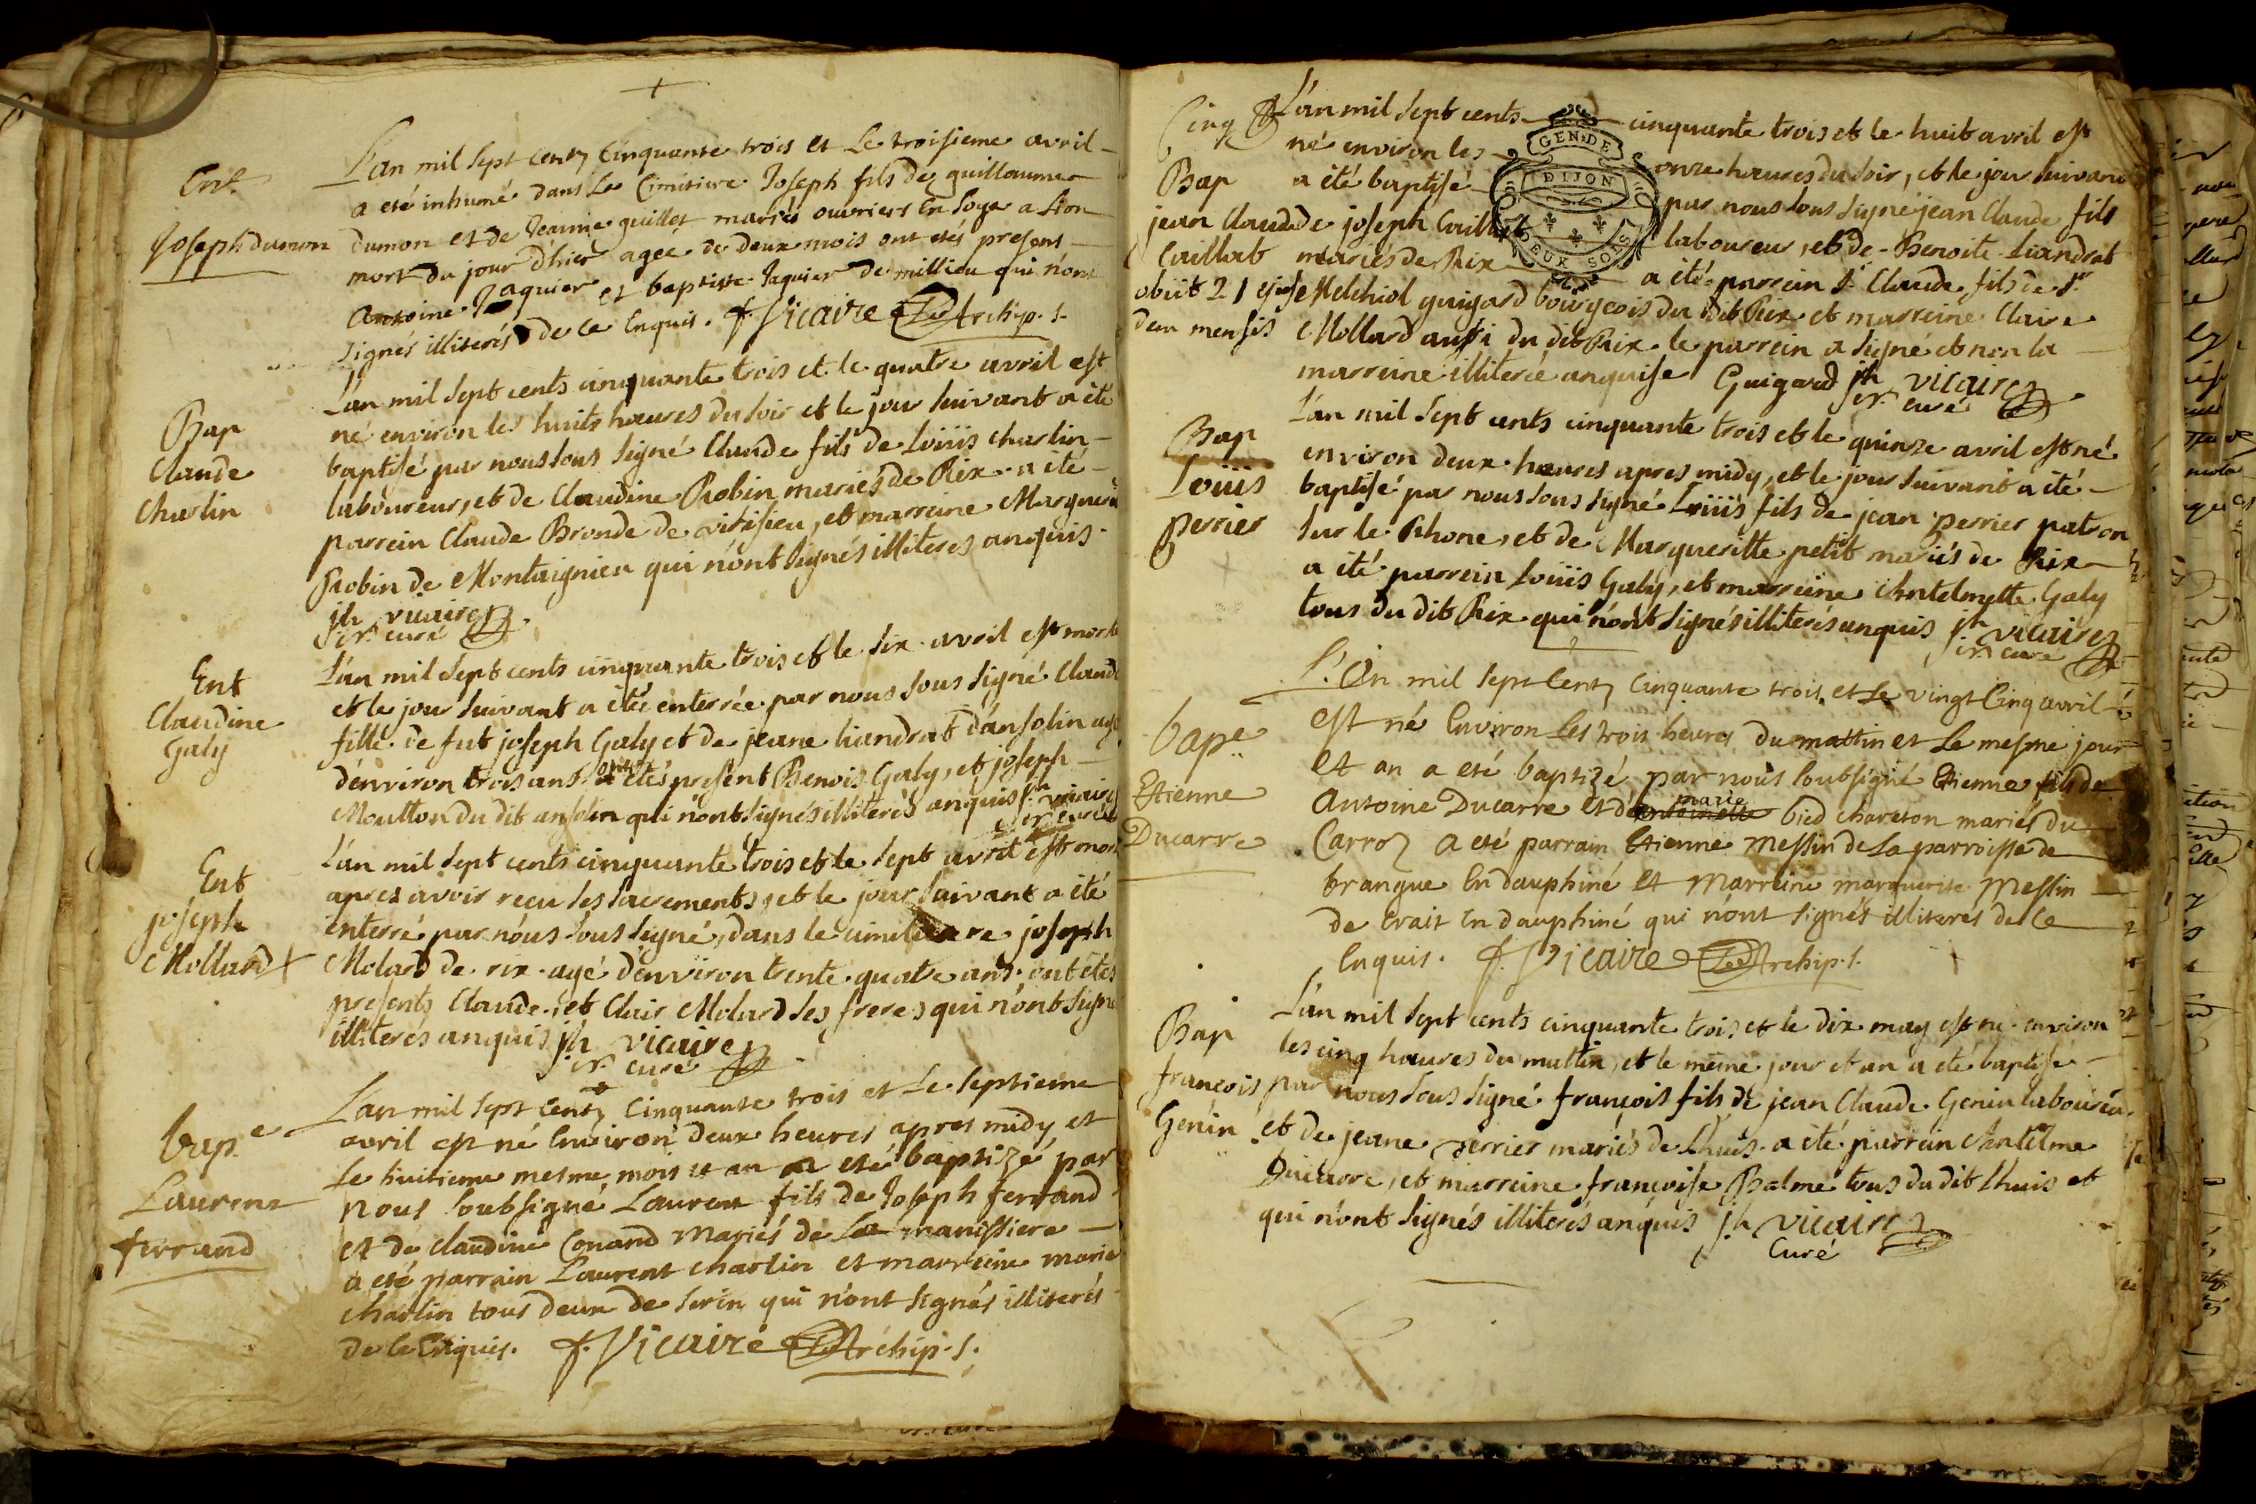 Ent.
Joseph dumon
L'an mil sept cents Cinquante trois et Le troisieme avril
a eté inhumé dans Le Cimitiere Joseph fils de guillaume
dumon et de Jeanne guillet mariés ouvriers En soye a Lion
mort du jour d'hier agee de deux mois ont etés presens
Antoine Jaquier et baptiste Jaquier de millieu qui n'ont
signés illiterés de ce Enquis. f. Vicaire Archip. s.
Bap
Claude
Charlin
L'an mil sept cents cinquante trois et le quatre avril est
né environ les huits heures du soir et le jour suivant a été
baptisé par nous sous signé Claude fils de Loüis charlin
laboureur, et de Claudine Robin mariés de Rix a été
parrein Claude Bronde de visisieu, et marreine Marguerit
Robin de Montaignieu qui n'ont signés illiteres anquis
jh vicaire
sr. curé
Ent
Claudine
Galy
L'an mil sept cents cinquante trois et le six avril est morte
et le jour suivant a étés enterrée par nous sous signé Claud
fille de fut joseph Galy et de jeane liandrat d'ansolin age
d'environ trois ans ont étés present Benois Galy, et joseph
Moutton du dit ansolin qui n'ont signés illiterés anquis jh vicaire
sr. curé
Ent
joseph
Mollard
L'an mil sept cents cinquante trois et le sept avril est mort
apres avoir recu ses sacrements, et le jour suivant a été
interré par nous sous signé, dans le cimetiere joseph
Molard de rix agé d'environ trente quatre ans ont étés
presents Claude, et Clair Molard ses freres qui n'ont signé
illiterés anquis jh vicaire
sr. curé
bap.e
Laurent
ferrand
L'an mil sept cents Cinquante trois et Le septieme
avril est né Environ deux heures apres midy et
Le huitieme mesme mois et an a eté baptizé par
nous soubsigné Laurent fils de Joseph ferrand
et de claudine Conand Mariés de La manissiere
a eté parrain Laurent charlin et marreine marie
charlin tous deux de serin qui n'ont signés illiterés
de ce Enquis. f. Vicaire Archip. s.
Cinq
Bap
jean Claude
Caillat
obiit 21 ejus
dem mensis
L'an mil sept cents cinquante trois et le huit avril est
né environ les onze heures du soir, et le jour suivant
a été baptisé par nous sous signé jean Claude fils
de joseph Caillat laboureur, et de Benoite Liandrat
mariés de Rix a été parrein sr. Claude fils de sr.
Melchiol guigard bourgeois du dit Rix et marreine Claire
Mollard aussi du dit Rix le parrein a signé et non la
marreine illiterée anquise Guigard jh vicaire
sr. curé
GEN. DE
DIJON
DEUX SOLS
Bap
Loüis
perrier
L'an mil sept cents cinquante trois et le quinze avril est né
environ deux heures apres midy, et le jour suivant a été
baptisé par nous sous signé Loüis fils de jean perrier patron
sur le Rhone, et de Margueritte petit mariés de Rix
a été parrein Loüis Galy, et marreine Antelmette Galy
tous du dit Rix qui n'ont signés illiterés anquis jh vicaire
sr. curé
bap.e
Etienne
Ducarre
L'An mil sept Cents Cinquante trois et Le vingt Cinq avril
est né Environ Les trois heures du mattin et Le mesme jour
et an a eté baptizé par nous soubsigné Etienne fils de
Antoine Ducarre et d'antoinette marie bied chareton mariés du
Carroz a eté parrain Etienne Messin de La parroisse de
brangue En dauphiné et Marreine marguerite Messin
de Crait En dauphiné qui n'ont signés illiterés de ce
Enquis. f. Vicaire Archip. s.
Bap
francois
Genin
L'an mil sept cents cinquante trois et le dix may est né environ
les cinq heures du mattin, et le meme jour et an a eté baptise
par nous sous signé françois fils de jean Claude Genin laboureu
et de jeane perrier mariés de Lhuis a été parrein Antelme
Ducarre, et marreine françoise Balme tous du dit Lhuis et
qui n'ont signés illiterés anquis jh vicaire
Curé